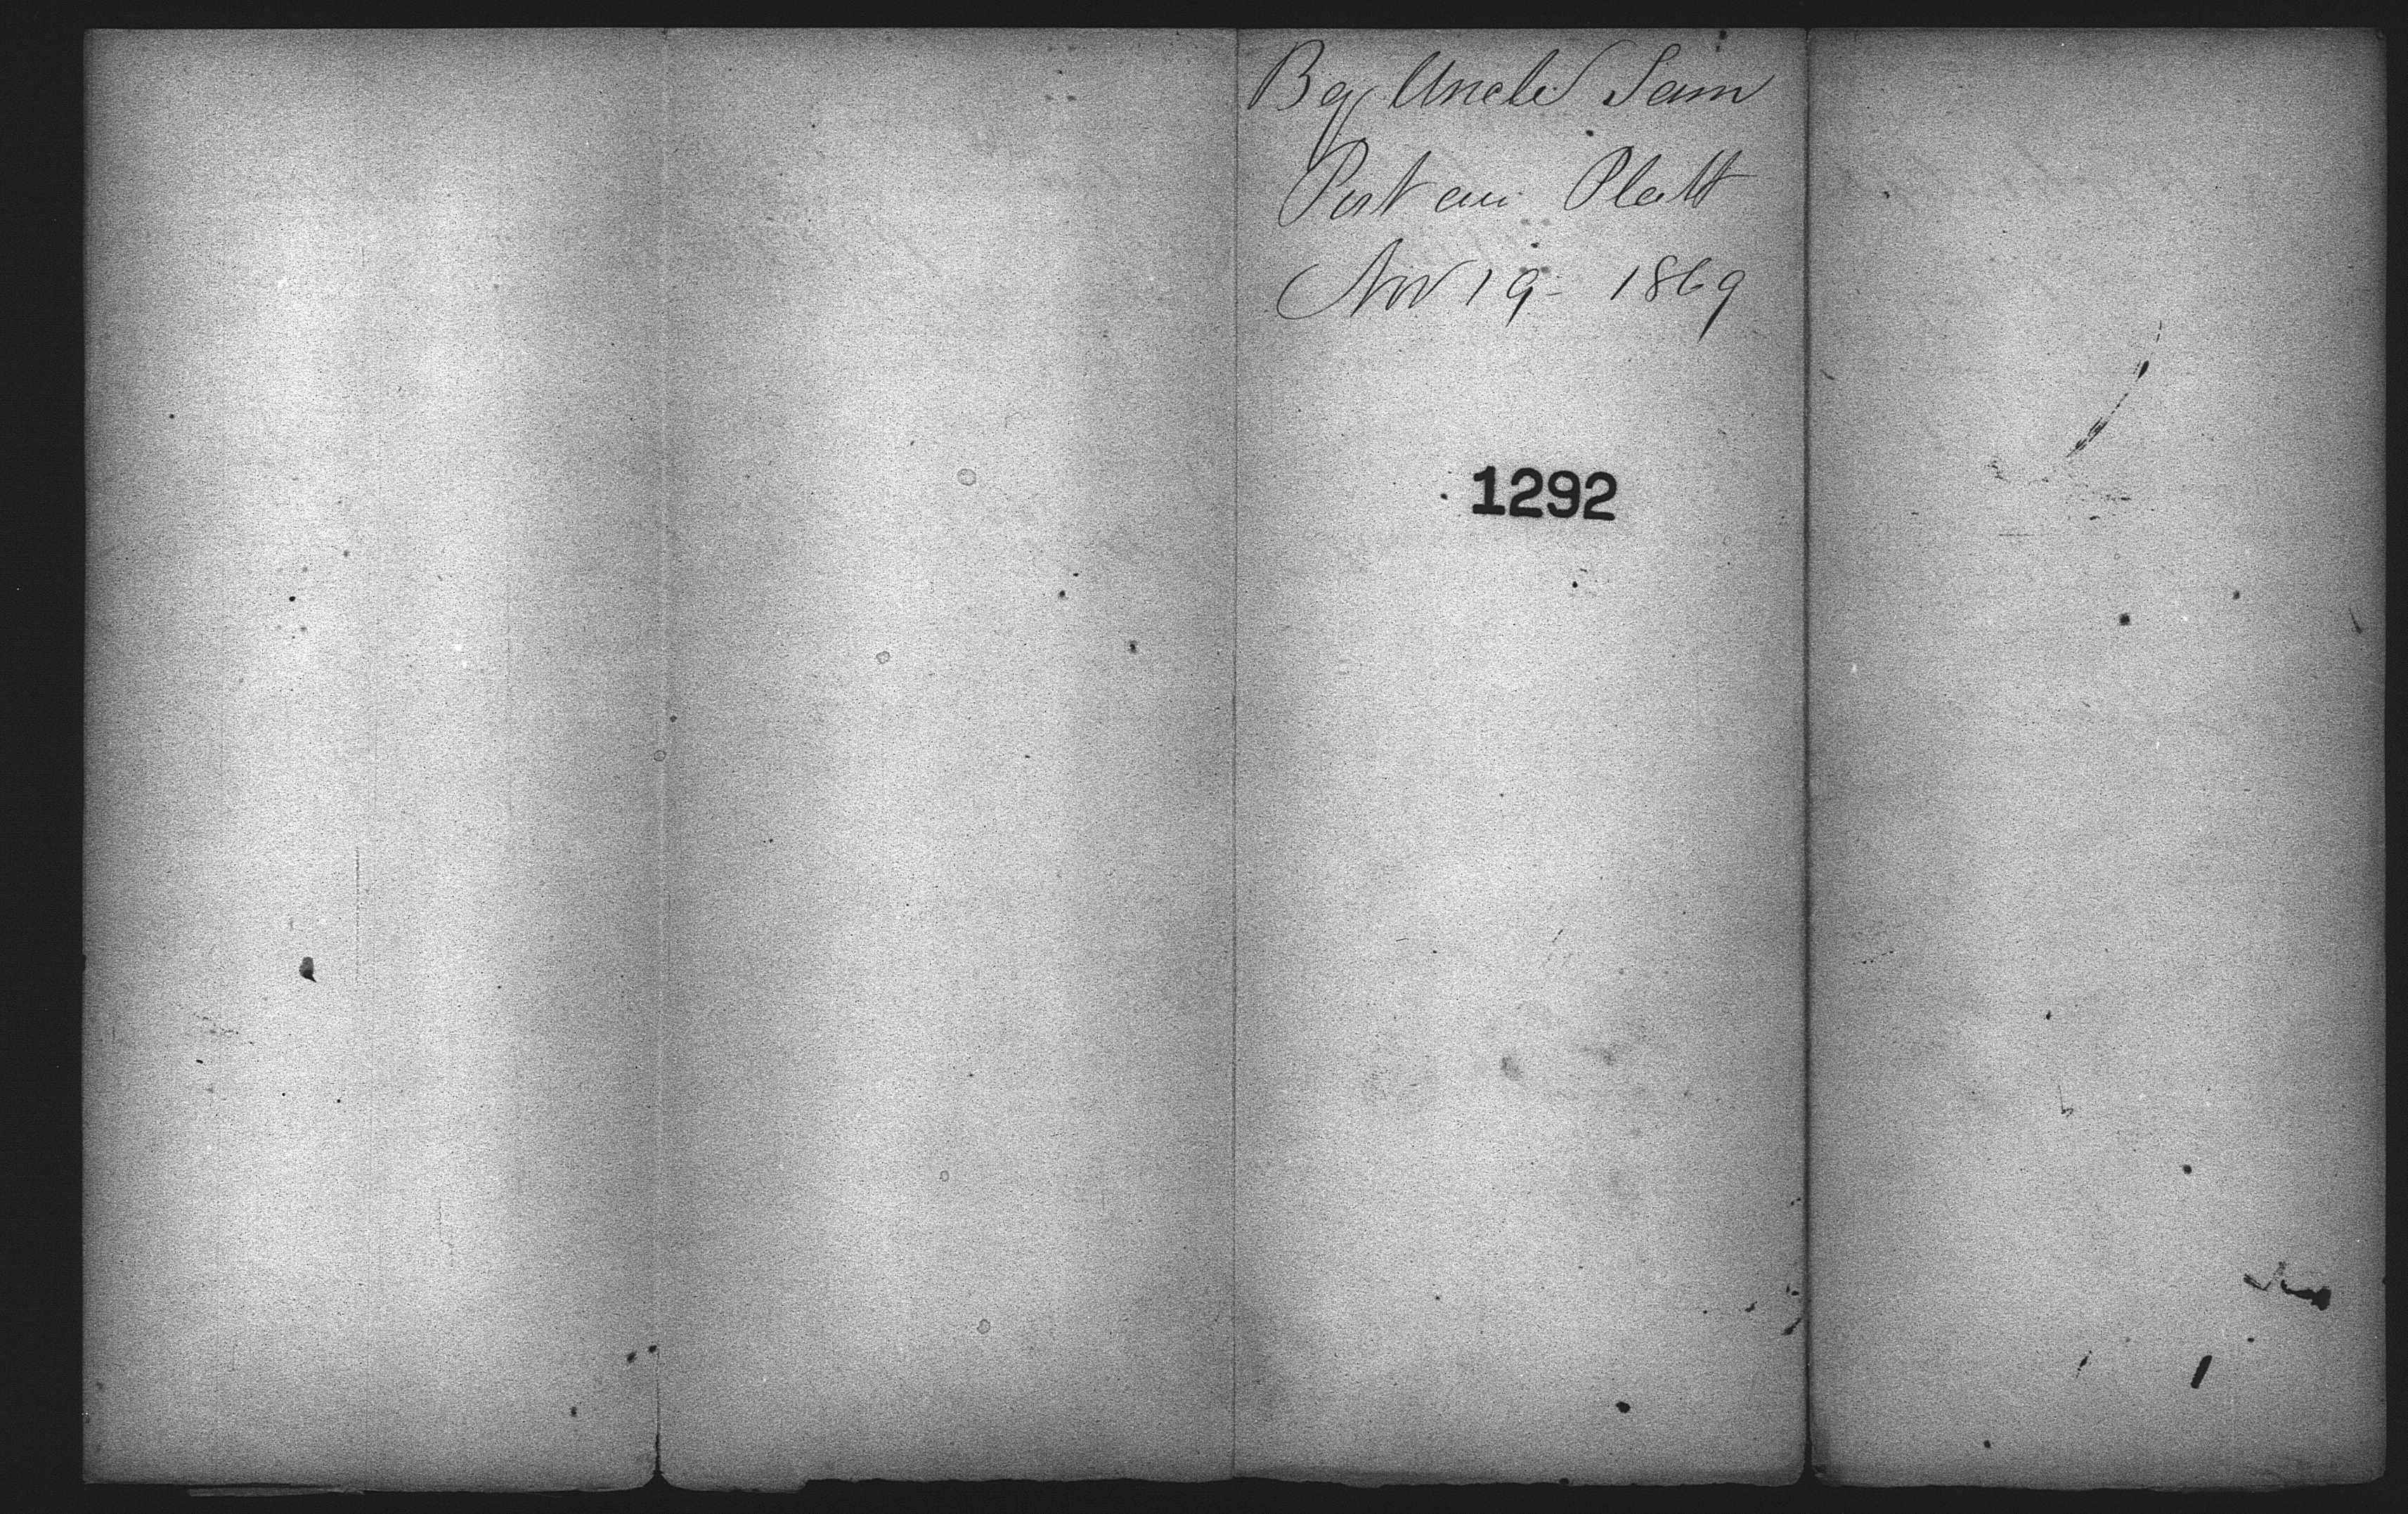 Bg Uncle Sam
Port au Platt
Nov 19 - 1869
1292